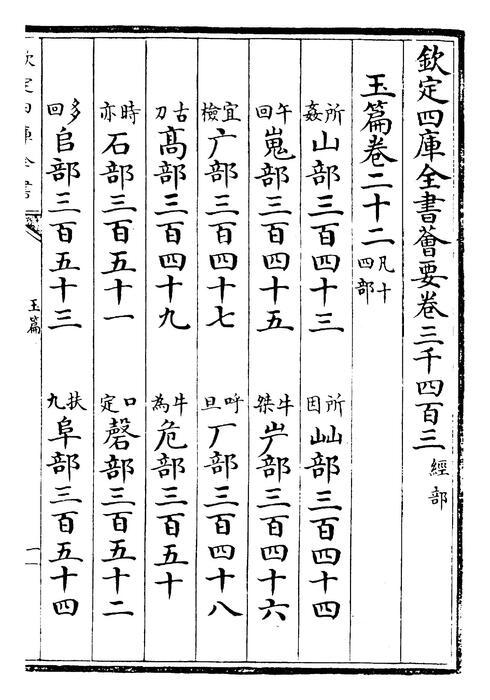 欽定四庫全書薈要卷三千四百三 經部
玉篇卷二十二 凡十四部
所姦山部三百四十三 所因屾部三百四十四
午回嵬部三百四十五 牛桀屵部三百四十六
宜檢广部三百四十七 呼旦厂部三百四十八
古刀髙部三百四十九 牛為危部三百五十
時亦石部三百五十一 口定磬部三百五十二
多回𠂤部三百五十三 扶九阜部三百五十四
欽定四庫全書 玉篇 一